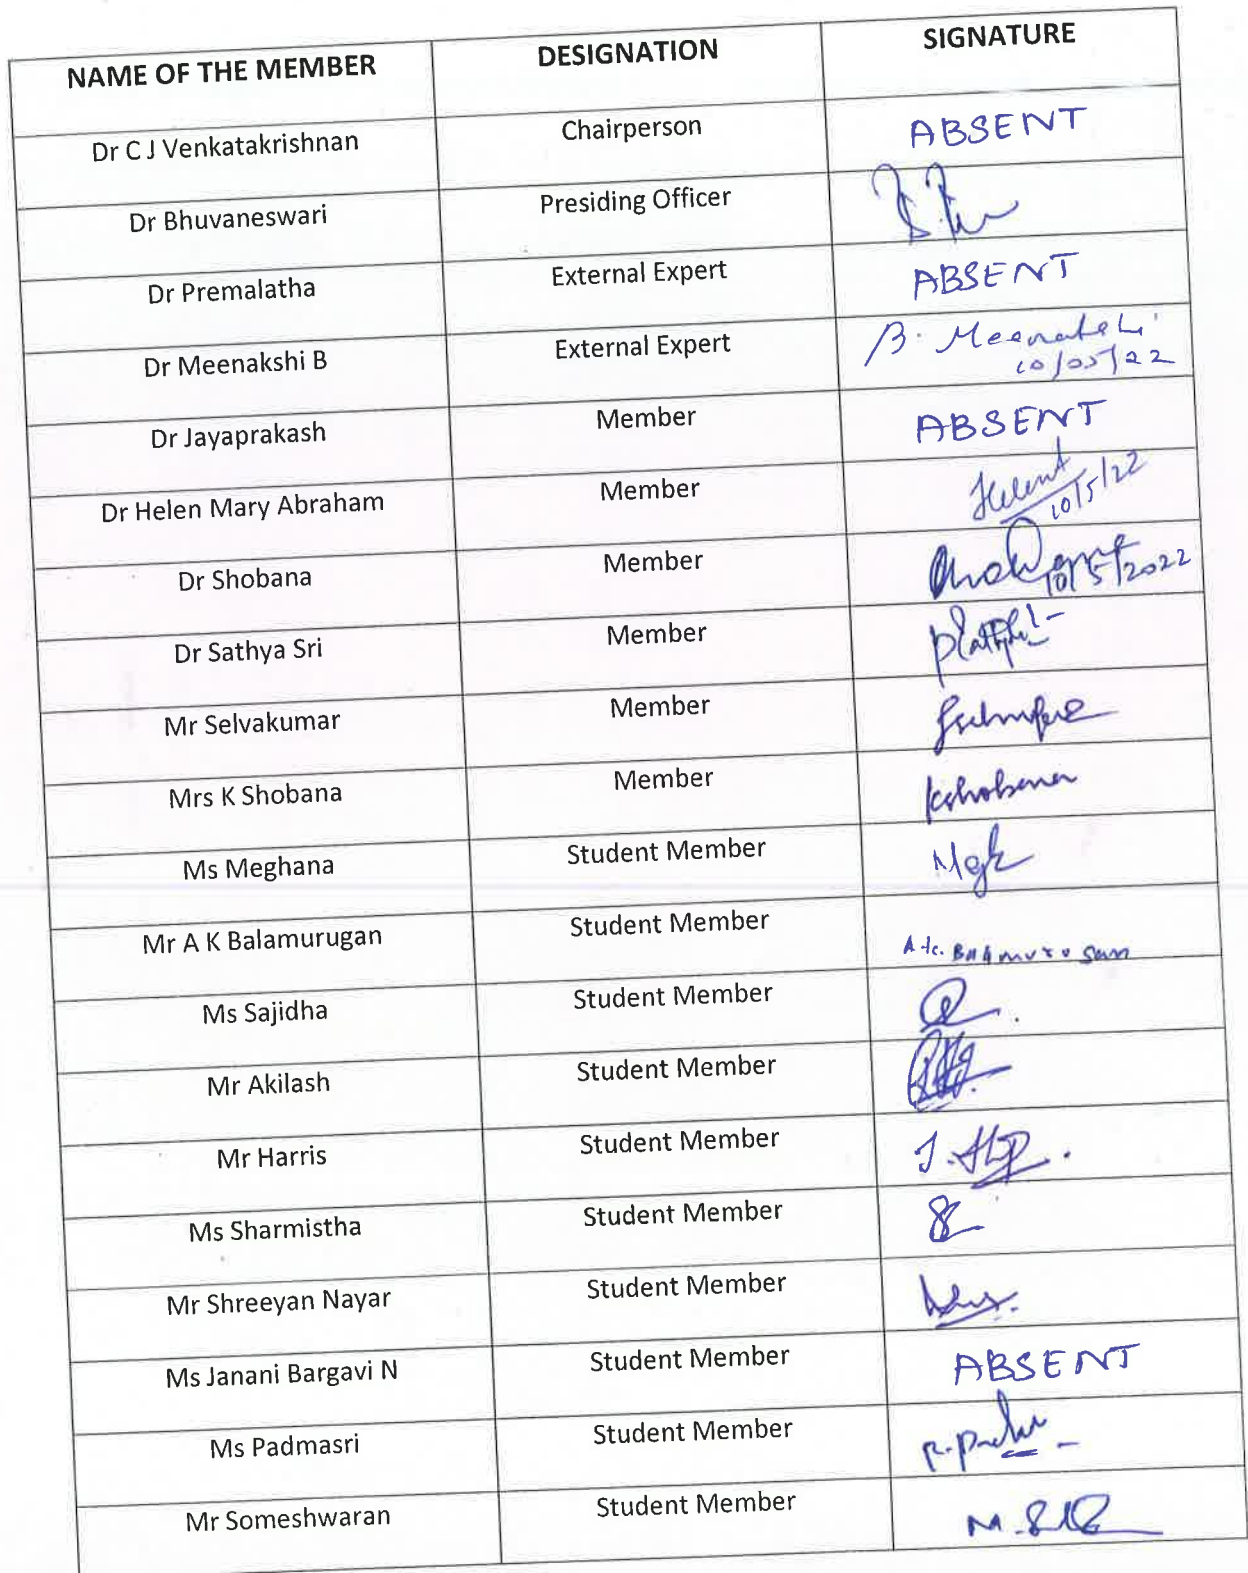 NAME OF THE MEMBER DESIGNATION SIGNATURE
Dr C J Venkatakrishnan Chairperson ABSENT
Dr Bhuvaneswari Presiding Officer
Dr Premalatha External Expert ABSENT
Dr Meenakshi B External Expert B. Meenakshi
10/05/22
Dr Jayaprakash Member ABSENT
Dr Helen Mary Abraham Member
10/5/22
Dr Shobana Member
10/5/2022
Dr Sathya Sri Member
Mr Selvakumar Member
Mrs K Shobana Member kshobana
Ms Meghana Student Member
Mr A K Balamurugan Student Member
Ms Sajidha Student Member
Mr Akilash Student Member
Mr Harris Student Member
Ms Sharmistha Student Member
Mr Shreeyan Nayar Student Member
Ms Janani Bargavi N Student Member ABSENT
Ms Padmasri Student Member
Mr Someshwaran Student Member